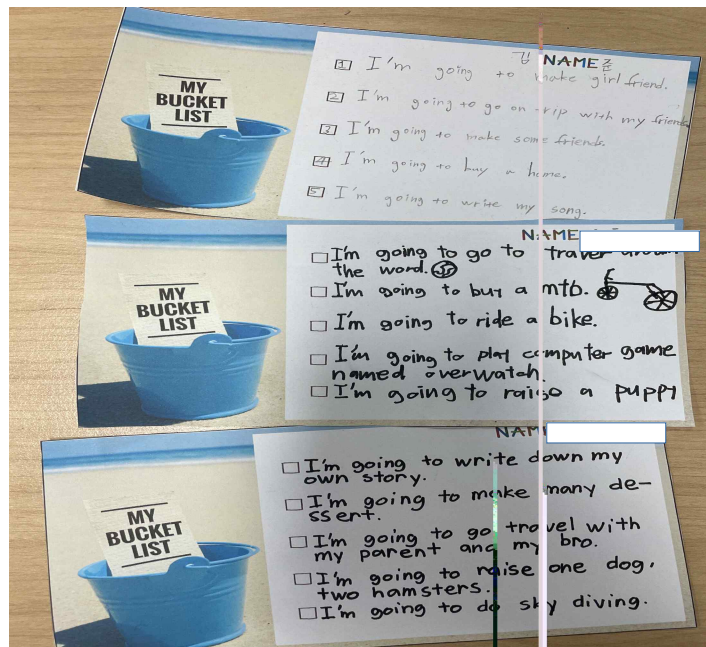 MY
BUCKET
LIST
김 NAME 준
1 I'm going to make girl friend.
2 I'm going to go on trip with my friends
3 I'm going to make some friends.
4 I'm going to buy a home.
5 I'm going to write my song.
MY
BUCKET
LIST
NAME
I'm going to go to travel around
the word.
I'm going to buy a mtb.
I'm going to ride a bike.
I'm going to play computer game
named overwatch.
I'm going to raise a puppy
MY
BUCKET
LIST
NAM
I'm going to write down my
own story.
I'm going to make many de-
ssert.
I'm going to go travel with
my parent and my bro.
I'm going to raise one dog,
two hamsters.
I'm going to do sky diving.